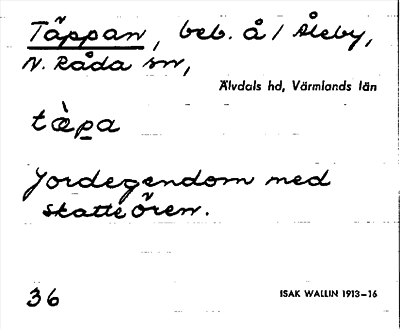 Täppan, beb. å / Åleby,
N. Råda sn,
Älvdals hd, Värmlands län
tæ̀pa
Jordegendom med
skatteören.
36
ISAK WALLIN 1913–16